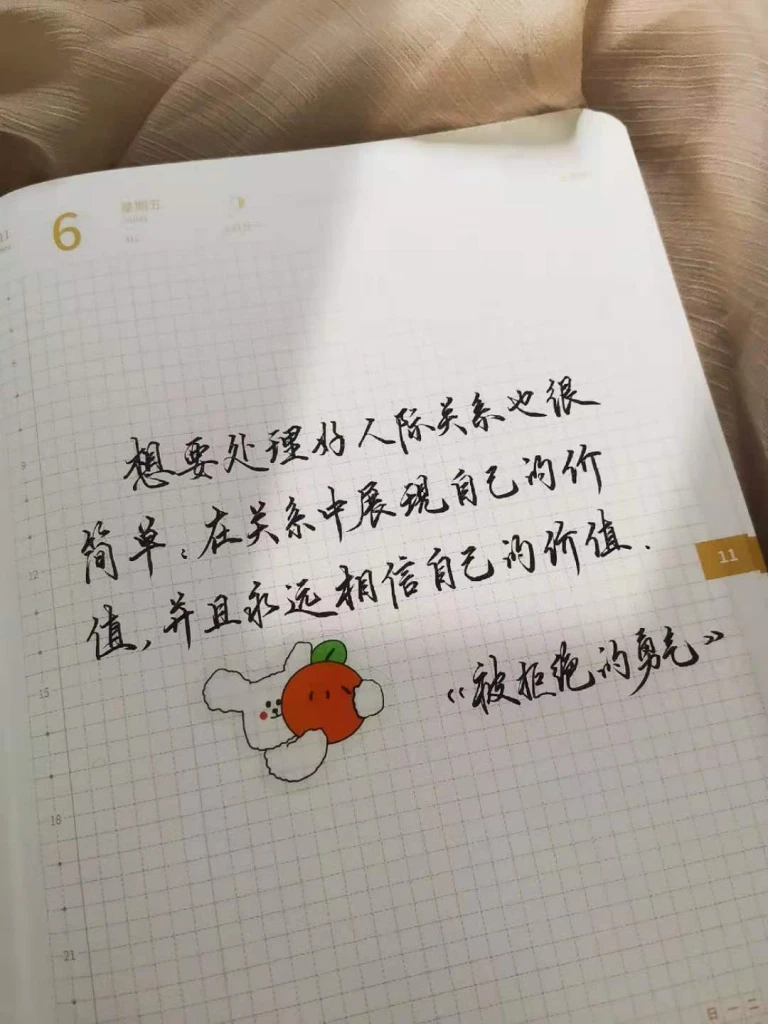 6 星期五
想要处理好人际关系也很
简单:在关系中展现自己的价
值,并且永远相信自己的价值.
《被拒绝的勇气》
11
9
12
15
18
21
日 一 二